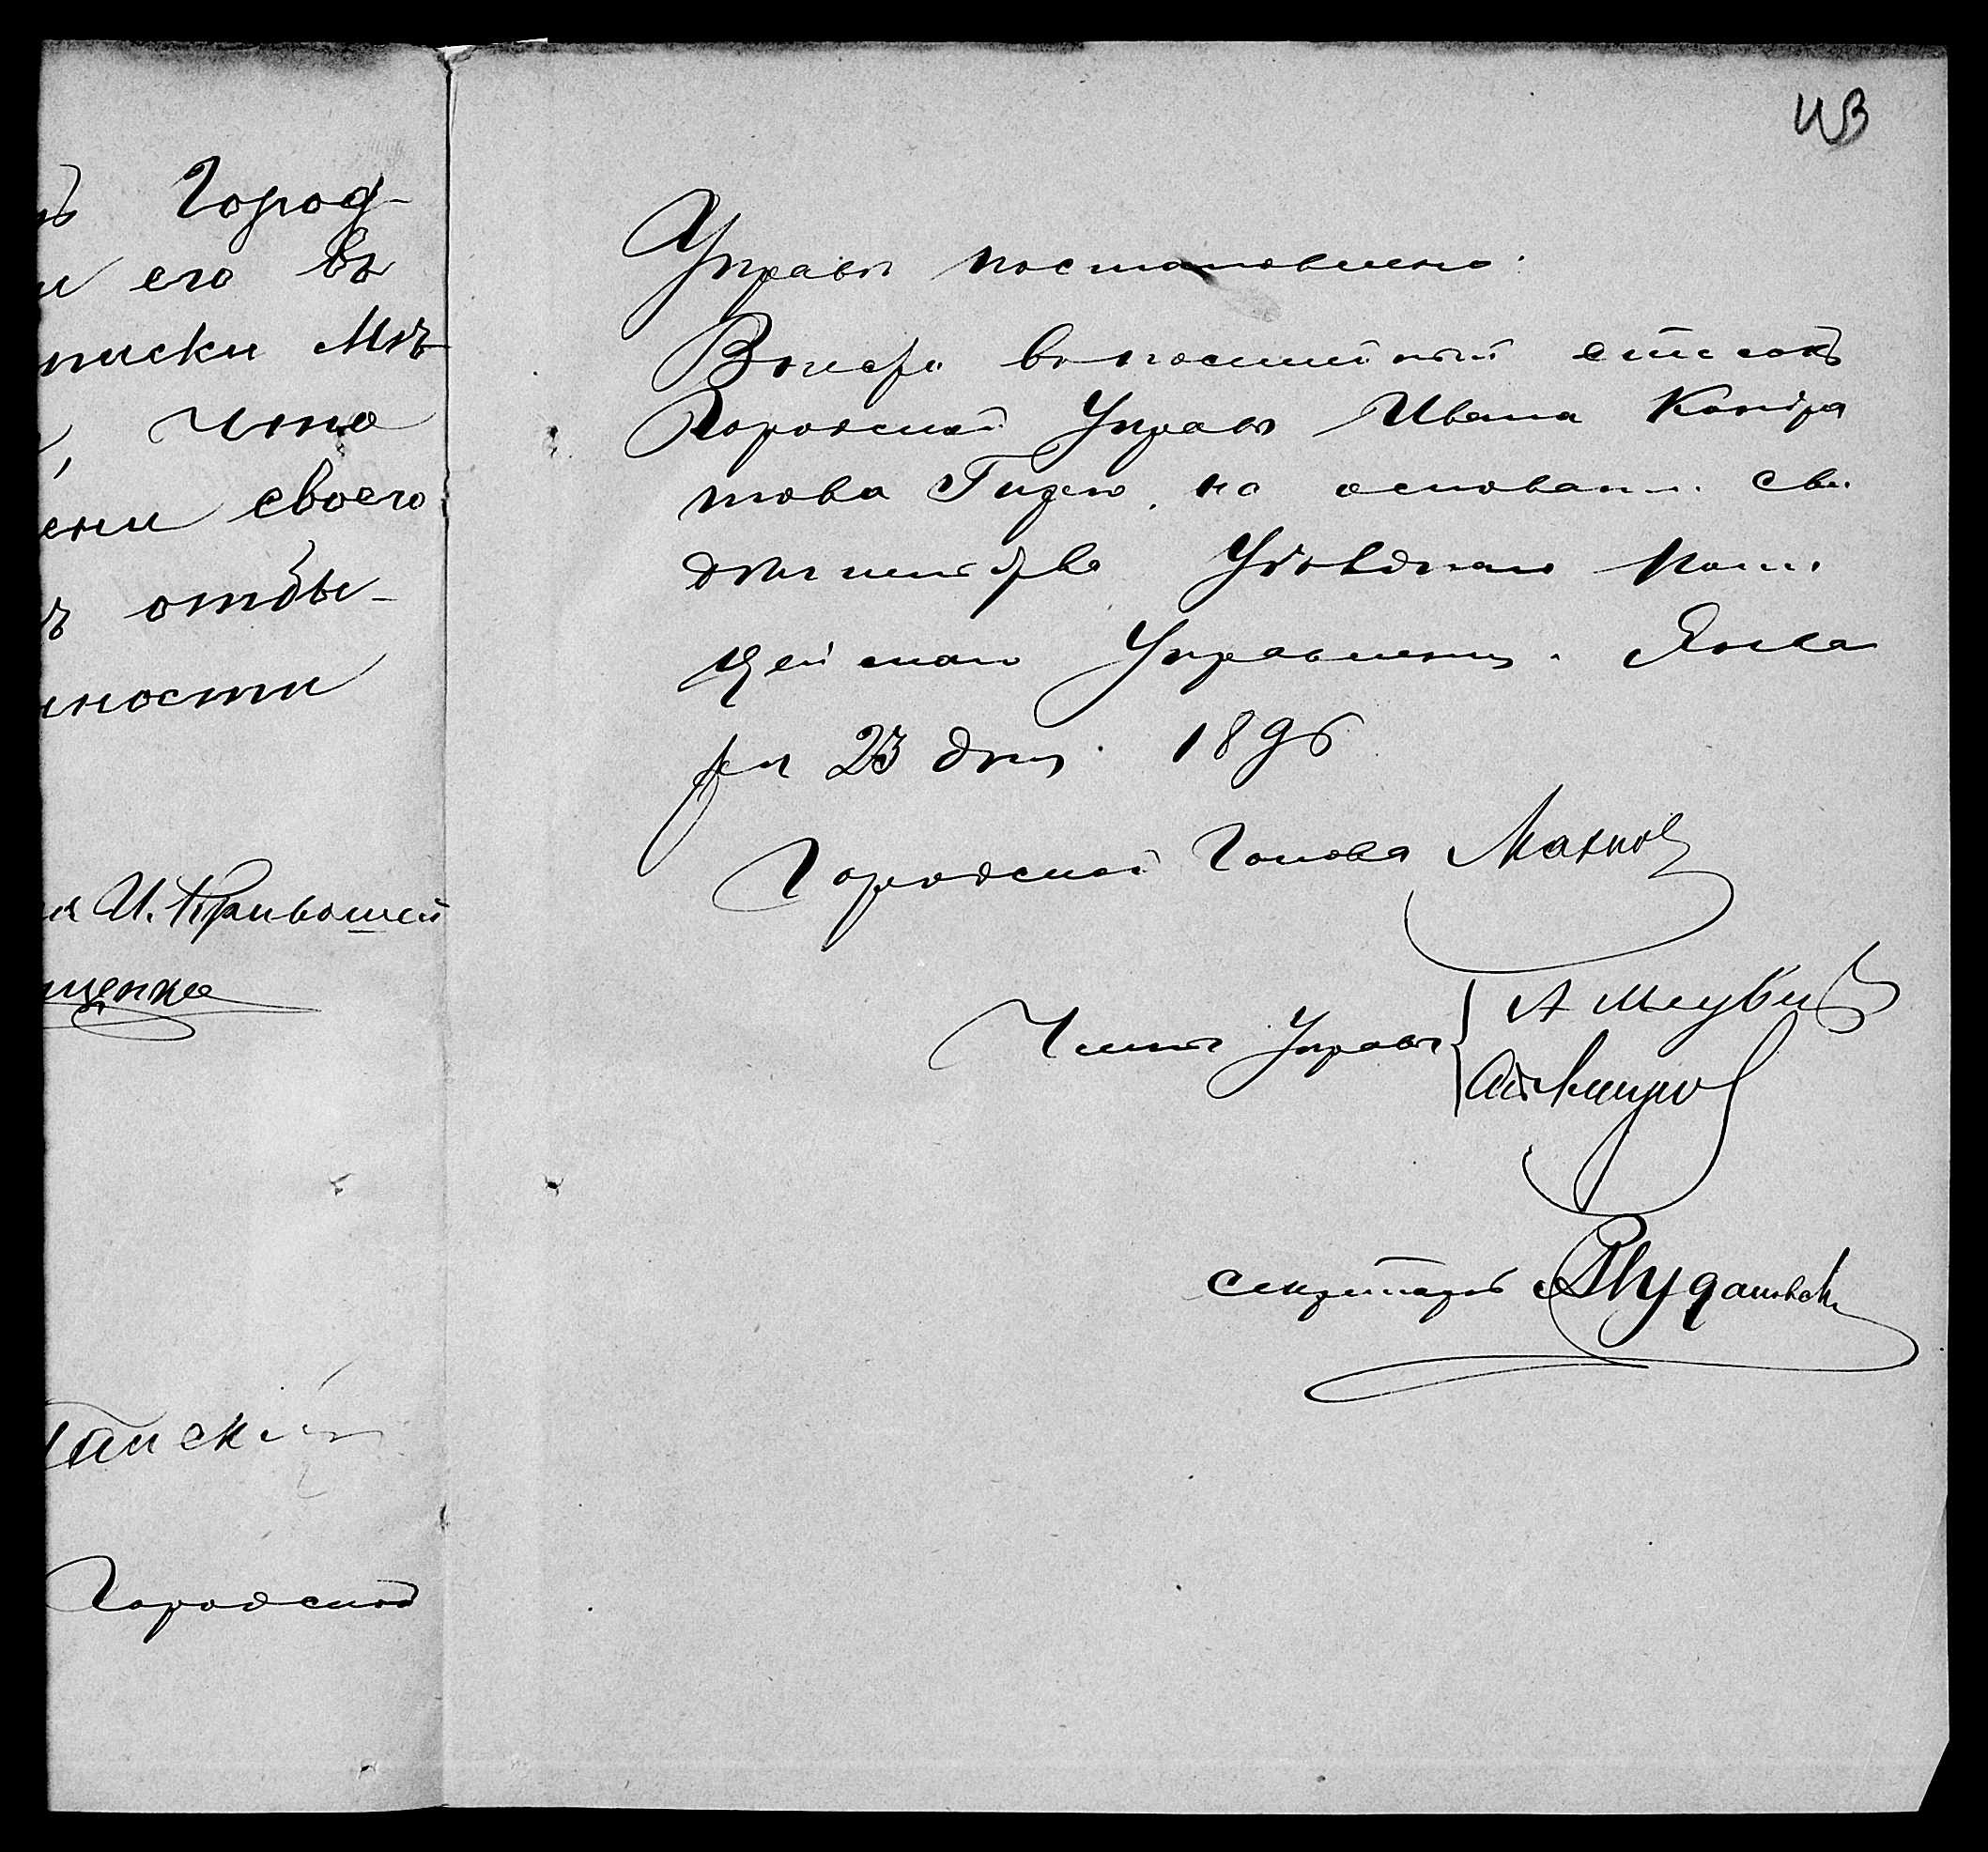 Город-
его въ
писки Мѣ
что
ени своего
отбы-
ности
И. Кривошей
щенко
Городской
43
Управы постановлено:
Внести въ посемейный списокъ
Городской Управы Ивана Кондра
това на основании сви
дѣтельства Уѣзднаго Поли
цейскаго Управления. Янва
ря 23 дня 1896
Городской Голова Махнов
Члены Управы А
Секретарь